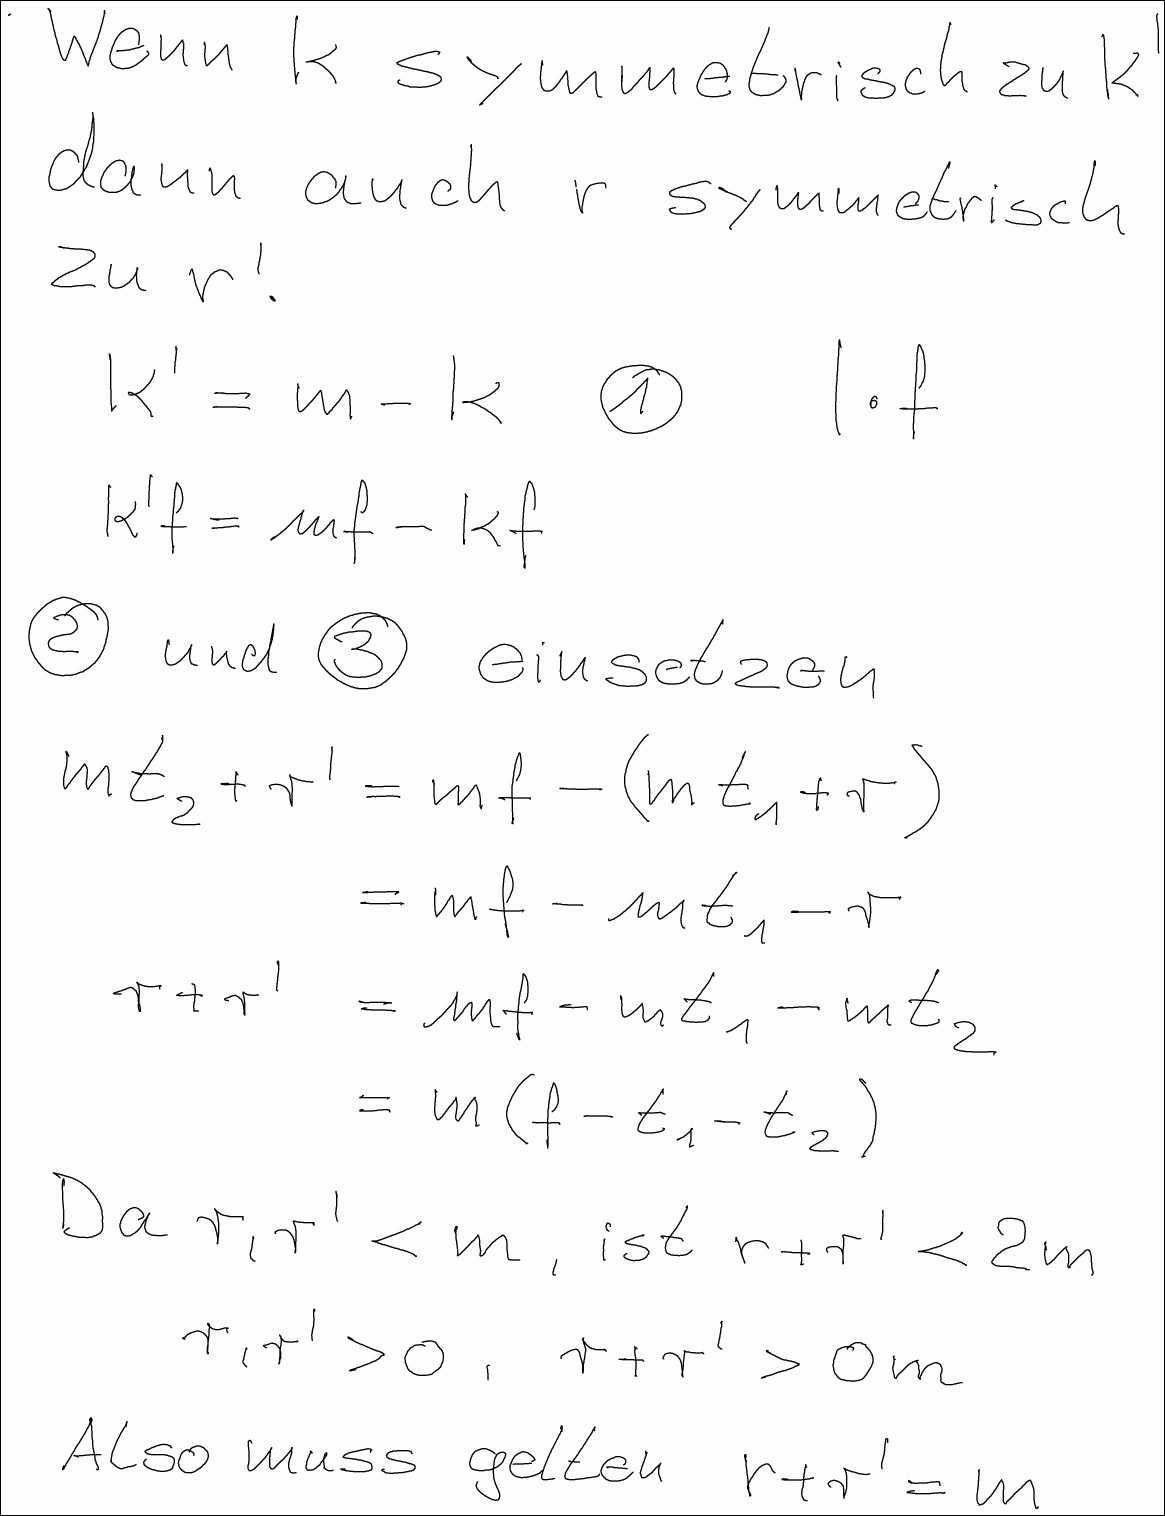 Wenn k symmetrisch zu k'
dann auch r symmetrisch
zu r'.
k' = m - k ① | · f
k'f = mf - kf
② und ③ einsetzen
mt₂ + r' = mf - (mt₁ + r)
= mf - mt₁ - r
r + r' = mf - mt₁ - mt₂
= m(f - t₁ - t₂)
Da r, r' < m, ist r + r' < 2m
r, r' > 0, r + r' > 0m
Also muss gelten r + r' = m